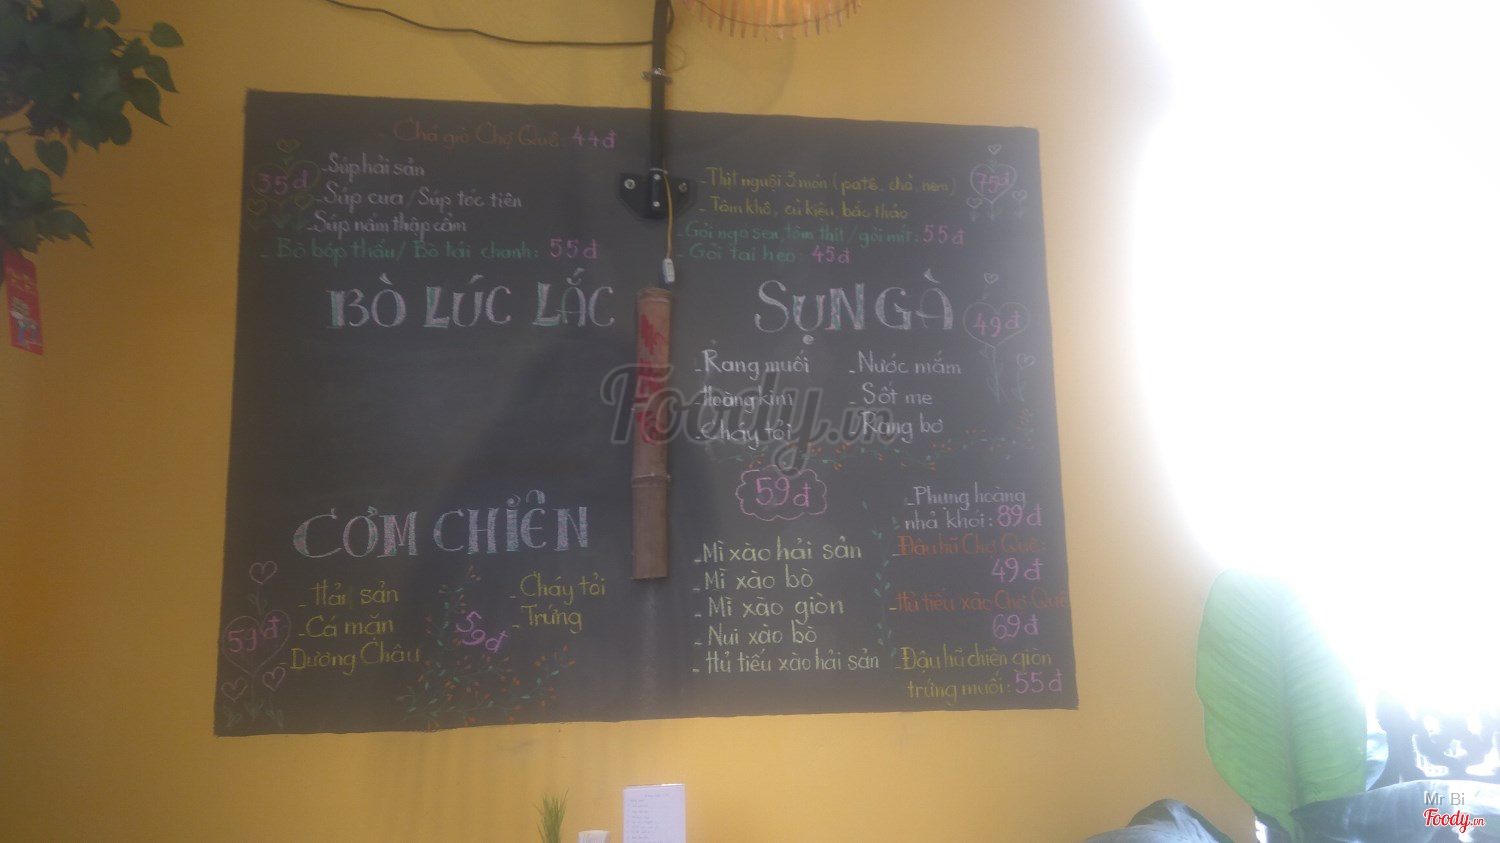 Chả giò Chợ Quê: 44đ
35đ
- Súp hải sản
- Súp cua / Súp tóc tiên
- Súp nấm thập cẩm
- Bò bóp thấu / Bò tái chanh: 55đ
BÒ LÚC LẮC
CƠM CHIÊN
- Hải sản
- Cá mặn
- Dương Châu
59đ
59đ
- Cháy tỏi
- Trứng
- Thịt nguội 3 món (patê, chả, nem)
- Tôm khô, củ kiệu, bắc thảo
75đ
- Gỏi ngó sen, tôm thịt / gỏi mít: 55đ
- Gỏi tai heo: 45đ
SỤN GÀ
49đ
- Rang muối
- Hoàng kim
- Cháy tỏi
- Nước mắm
- Sốt me
- Rang bơ
59đ
- Mì xào hải sản
- Mì xào bò
- Mì xào giòn
- Nui xào bò
- Hủ tiếu xào hải sản
- Phụng hoàng
nhả khói: 89đ
- Đậu hũ Chợ Quê:
49đ
- Hủ tiếu xào Chợ Quê
69đ
- Đậu hũ chiên giòn
trứng muối: 55đ
Foody.vn
Mr Bi
Foody.vn